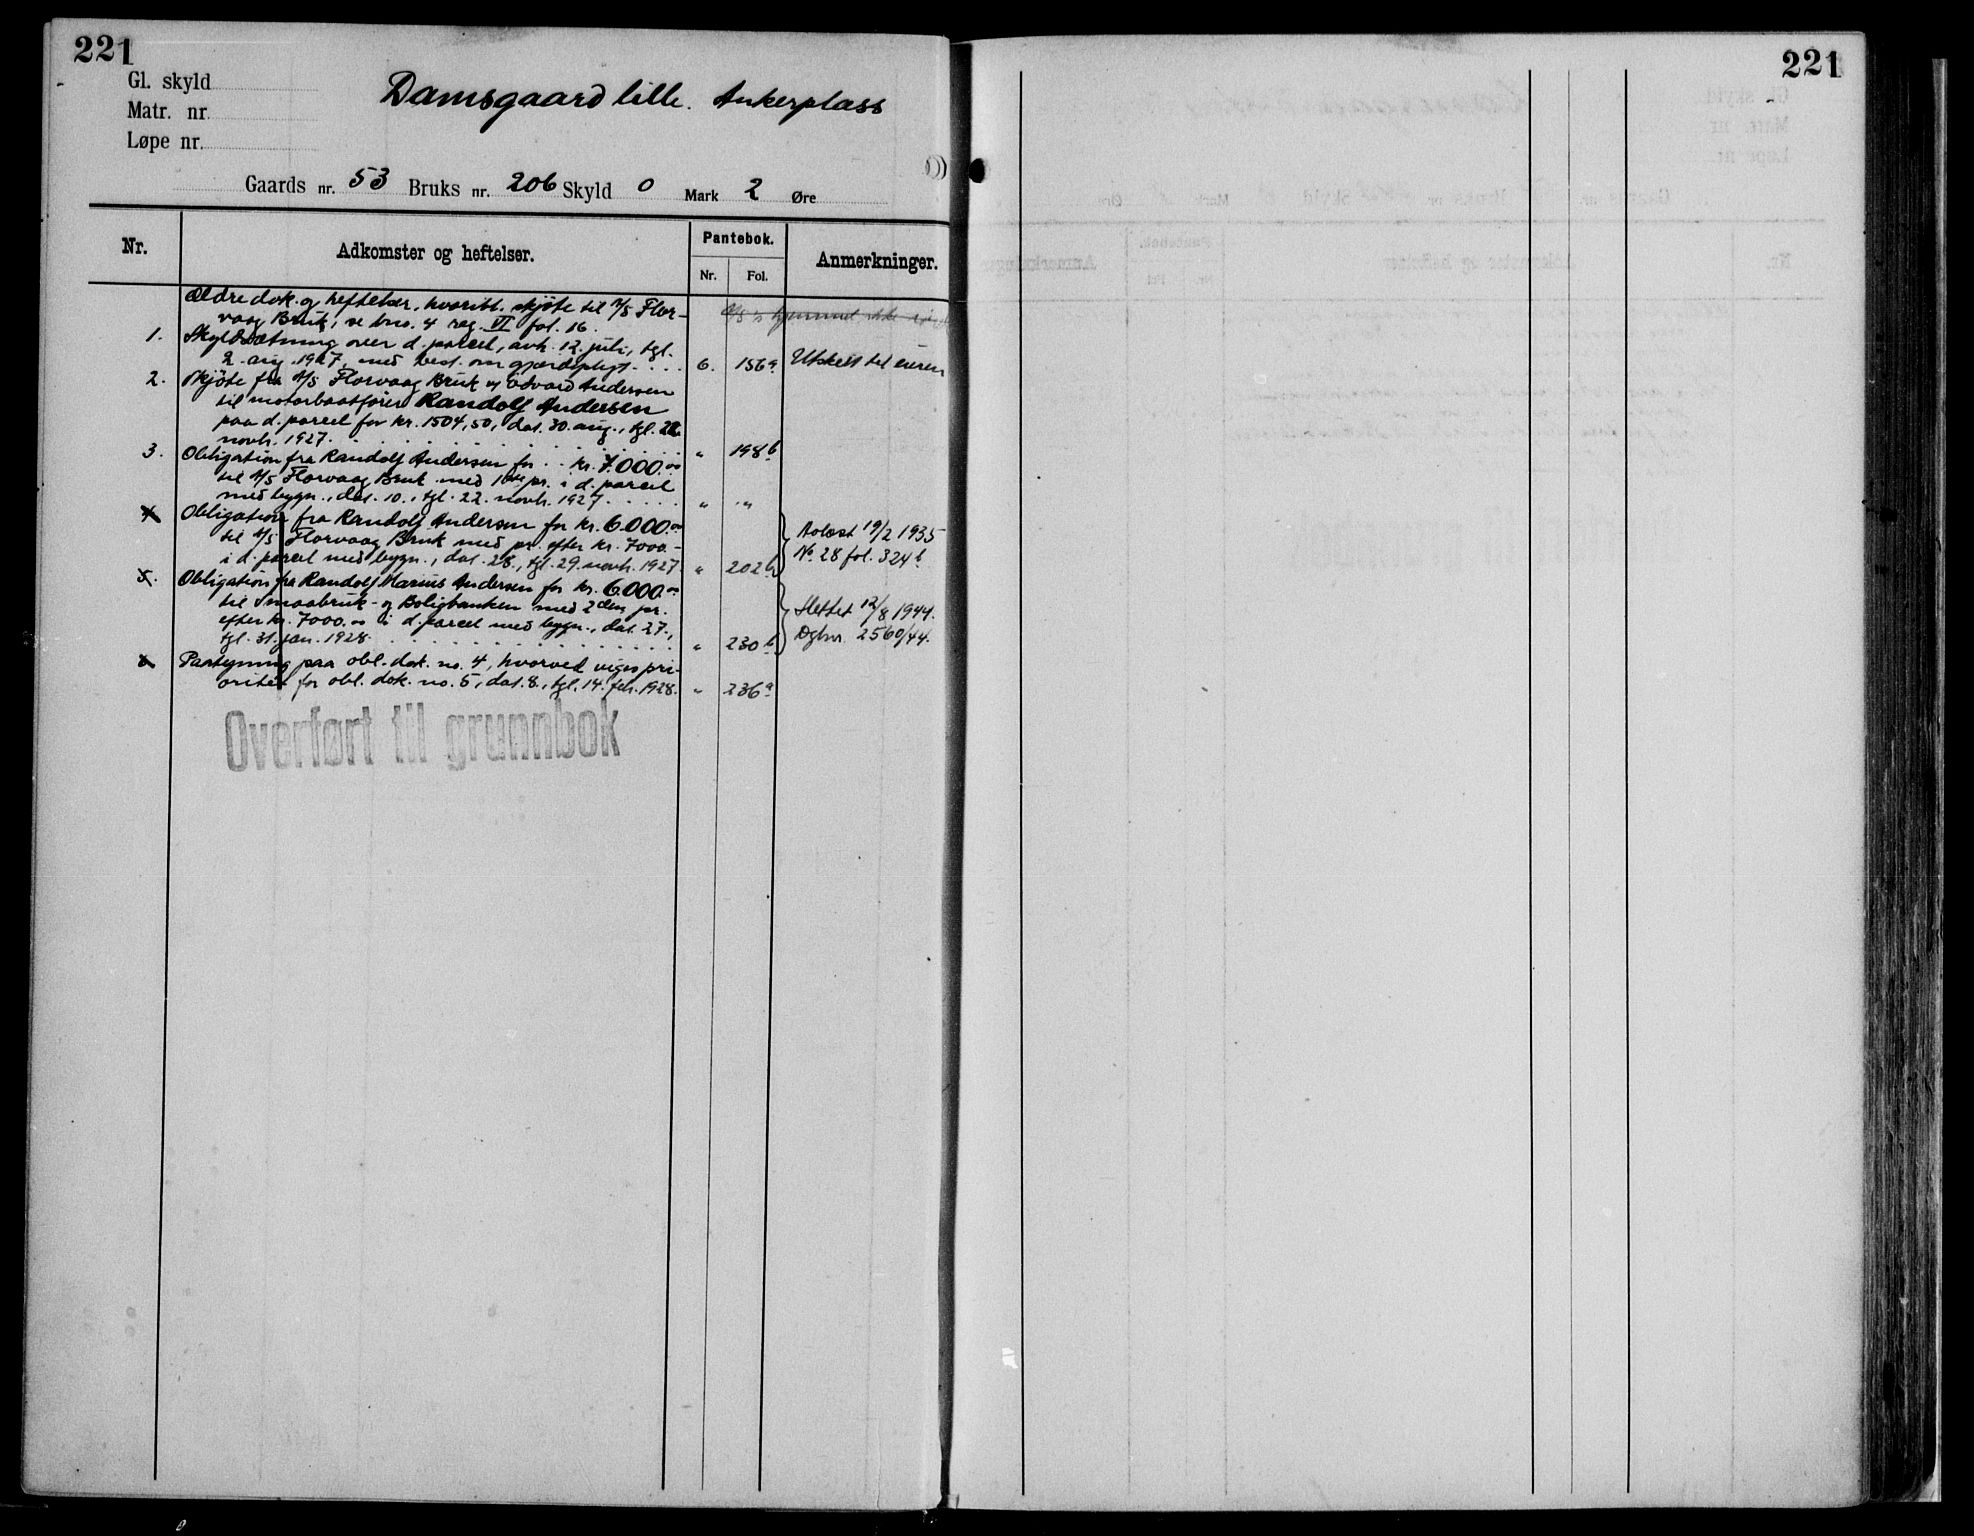 221
Gl. skyld
Matr. nr.
Løpe nr.
Damsgaard lille. Ankerplass
Gaards nr. 53 Bruks nr. 206 Skyld 0 Mark 2 Øre
Nr. Adkomster og heftelser. Pantebok. Anmerkninger.
Nr. Fol.
Ældre dok. og heftelser, hvoribl. skjøte til A/S Flor-
vaag Bruk, se bno. 4 reg. VI fol. 16.
1. Skyldsætning over d. parcel, avh. 12. juli, tgl.
2. aug. 1927, med best. om gjærdepligt. . . . 6. 156a Utskilt til eieren
2. Skjøte fra A/S Florvaag Bruk og Edvard Andersen
til motorbaatfører Randolf Andersen
paa d. parcel for kr. 1504,50, dat. 30. aug., tgl. 22.
novbr. 1927. . . . " 198b
3. Obligation fra Randolf Andersen for . . kr. 7.000.00
til A/S Florvaag Bruk med 1ste pr. i d. parcel
med bygn., dat. 10., tgl. 22. novbr. 1927. . . . " "
4. Obligation fra Randolf Andersen for kr. 6.000.00
til A/S Florvaag Bruk med pr. efter kr. 7000.-
i d. parcel med bygn., dat. 28., tgl. 29. novbr. 1927 " 202b
Avlæst 19/2 1935
No 28 fol. 324b
5. Obligation fra Randolf Marius Andersen for kr. 6.000.00
til Smaabruk- og Boligbanken med 2den pr.
efter kr. 7000.00 i d. parcel med bygn., dat. 27.,
tgl. 31. jan. 1928. . . . " 230b
Slettet 12/8 1944.
Dgbnr. 2560/44.
6. Paategning paa obl. dok. no. 4, hvorved viges pri-
oritet for obl. dok. no. 5, dat. 8., tgl. 14. feb. 1928. " 236a
Overført til grunnbok
221